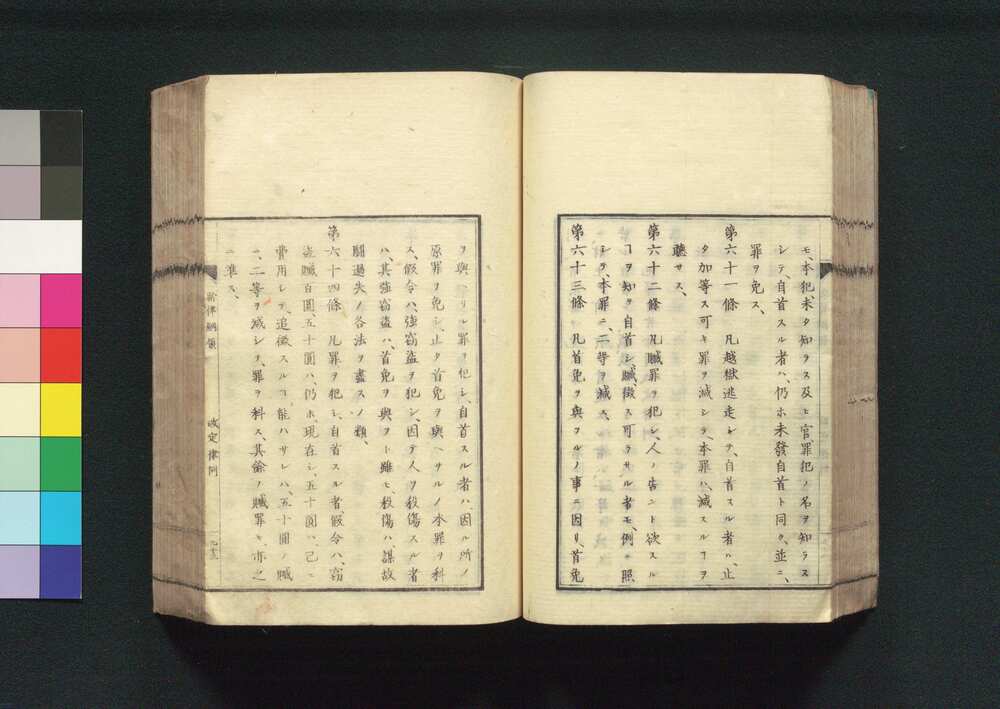 モ、本犯、未タ知ラス、及ヒ官、罪犯ノ名ヲ知ラス
シテ、自首スル者ハ、仍ホ未發自首ト同ク、並ニ、
罪ヲ免ス、
第六十一條　凡越獄逃走シテ、自首スル者ハ、止
タ加等ス可キ罪ヲ減シテ、本罪ハ、減スルヿヲ
聽サス、
第六十二條　凡贓罪ヲ犯シ、人ノ告ント欲スル
ヿヲ知テ自首シ、贓徴ス可ラサル者モ、例ニ照
シテ、本罪ニ、二等ヲ減ス、
第六十三條　凡首免ヲ與フルノ事ニ因リ、首免
ヲ與ヘサル罪ヲ犯シ、自首スル者ハ、因ル所ノ
原罪ヲ免シ、止タ首免ヲ與ヘサルノ本罪ヲ科
ス、假令ハ、強竊盗ヲ犯シ、因テ人ヲ殺傷スル者
ハ、其強竊盗ハ、首免ヲ與フト雖モ、殺傷ハ、謀故
鬪過失ノ各法ヲ盡スノ類、
第六十四條　凡罪ヲ犯シ、自首スル者、假令ハ、竊
盗贓百圓、五十圓ハ、仍ホ現在シ、五十圓ハ、已ニ
費用シテ、追徴スルヿ能ハサレハ、五十圓ノ贓
ニ、二等ヲ減シテ、罪ヲ科ス、其餘ノ贓罪モ、亦之
ニ準ス、
新律綱領　改定律例